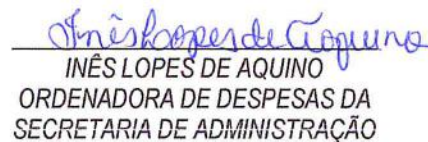 Inês Lopes de Aquino
INÊS LOPES DE AQUINO
ORDENADORA DE DESPESAS DA
SECRETARIA DE ADMINISTRAÇÃO